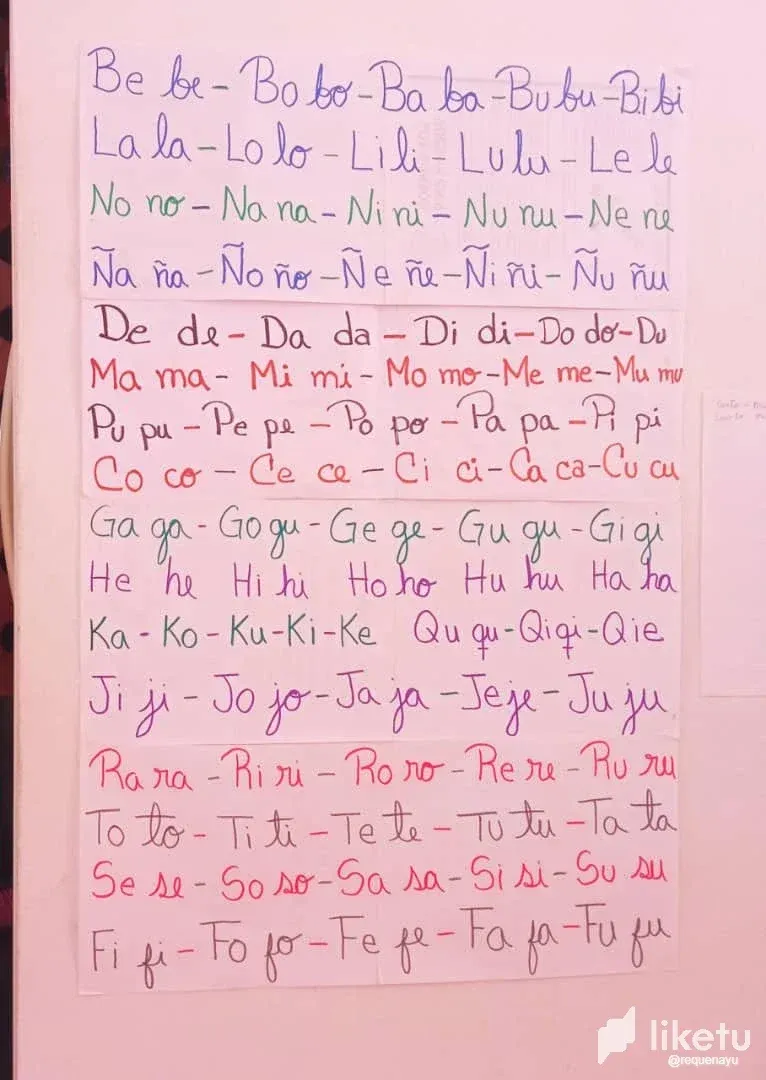 Be be - Bo bo - Ba ba - Bu bu - Bi bi
La la - Lo lo - Li li - Lu lu - Le le
No no - Na na - Ni ni - Nu nu - Ne ne
Ña ña - Ño ño - Ñe ñe - Ñi ñi - Ñu ñu
De de - Da da - Di di - Do do - Du
Ma ma - Mi mi - Mo mo - Me me - Mu mu
Pu pu - Pe pe - Po po - Pa pa - Pi pi
Co co - Ce ce - Ci ci - Ca ca - Cu cu
Ga ga - Go gu - Ge ge - Gu gu - Gi gi
He he Hi hi Ho ho Hu hu Ha ha
Ka - Ko - Ku - Ki - Ke Qu qu - Qi qi - Qie
Ji ji - Jo jo - Ja ja - Je je - Ju ju
Ra ra - Ri ri - Ro ro - Re re - Ru ru
To to - Ti ti - Te te - Tu tu - Ta ta
Se se - So so - Sa sa - Si si - Su su
Fi fi - Fo fo - Fe fe - Fa fa - Fu fu
liketu
@requenayu